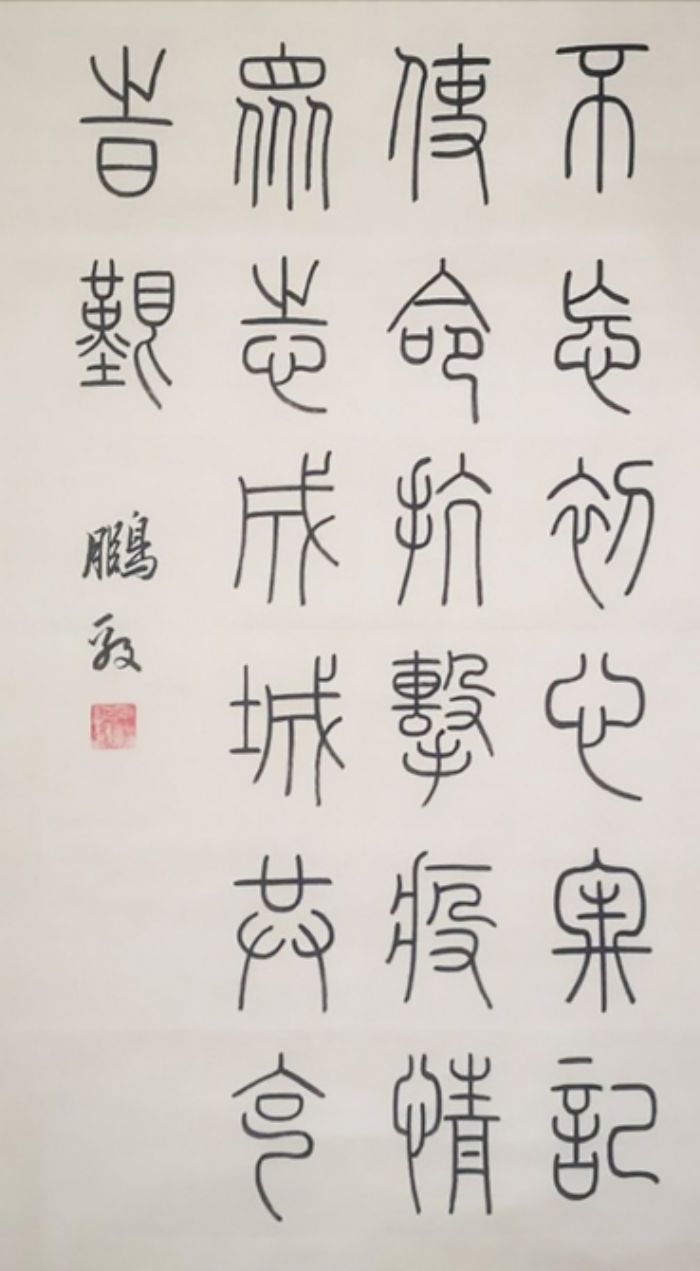 不忘初心牢記
使命抗擊疫情
眾志成城共克
旹艱
鵬